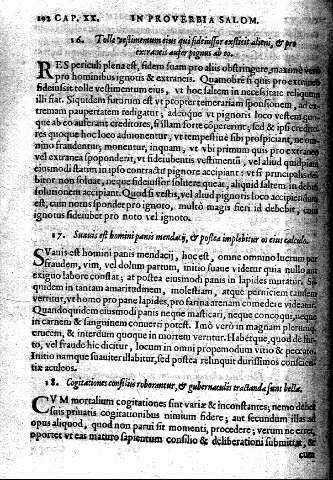 192 CAP. XX. IN PROVERBIA SALOM.
16. Tolle vestimentum eius qui fideiussor exstitit alieni, & pro
extraneis aufer pignus ab eo.
RES periculi plena est, fidem suam pro aliis obstringere, maximè verò
pro hominibus ignotis & extraneis. Quamobrem si quis pro extraneo
fideiussit tolle vestimentum eius, vt hoc saltem in necessitate reliquum
illi fiat. Siquidem futurum est vt propter temerariam sponsionem, ad ex-
tremam paupertatem redigatur; adeoque vt pignoris loco vestem quo-
que ab eo auferant creditores, si illam forte cœperint; sed & ipsi credito-
res quoque hoc loco admonentur, vt tempestiuè sibi prospiciant, ne om-
nino fraudentur, monentur, inquam, vt vbi primum quis pro extraneo
vel extranea spoponderit, vt fideiubentis vestimentū, vel aliud quidpiam
eiusmodi statim in ipso contractu pignore accipiant: vt si principalis de-
bitor non soluat, neque fideiussor soluere queat, aliquid saltem in debiti
solutionem accipiant. Quod si vestis, vel aliud pignoris loco accipiendum
est, cum notus spondet pro ignoto, multò magis fieri id debebit, cum
ignotus fideiubet pro noto vel ignoto.
17. Suauis est homini panis mendacij, & postea implebitur os eius calculo.
SVauis est homini panis mendacij, hoc est, omne omnino lucrum per
fraudem, vim, vel dolum partum, initio suaue videtur quia nullo aut
exiguo labore constat; at postea eiusmodi panis in lapides mutatur. Si-
quidem in tantam amaritudinem, molestiam, atque perniciem tandem
vertitur, vt homo pro pane lapides, pro farina arenam comedere videatur.
Quandoquidem eiusmodi panes neque masticari, neque concoqui, neque
in carnem & sanguinem conuerti potest. Imò verò in magnam plerunque
crucem, & interdum quoque in mortem vertitur. Habétque, quod de fur-
to, vel fraude hic dicitur, locum in omni propemodum vitio & peccato.
Initio namque suauiter illabitur, sed postea relinquit durissimos conscien-
tiæ aculeos.
18. Cogitationes consiliis roborantur, & gubernaculis tractanda sunt bella.
CVM mortalium cogitationes sint variæ & inconstantes; nemo debet
suis priuatis cogitationibus nimium fidere; aut secundum illas ad
opus aliquod, quod non parui sit momenti, procedere; verum ne erret,
oportet vt eas maturo sapientum consilio & deliberationi submittat, &
cum